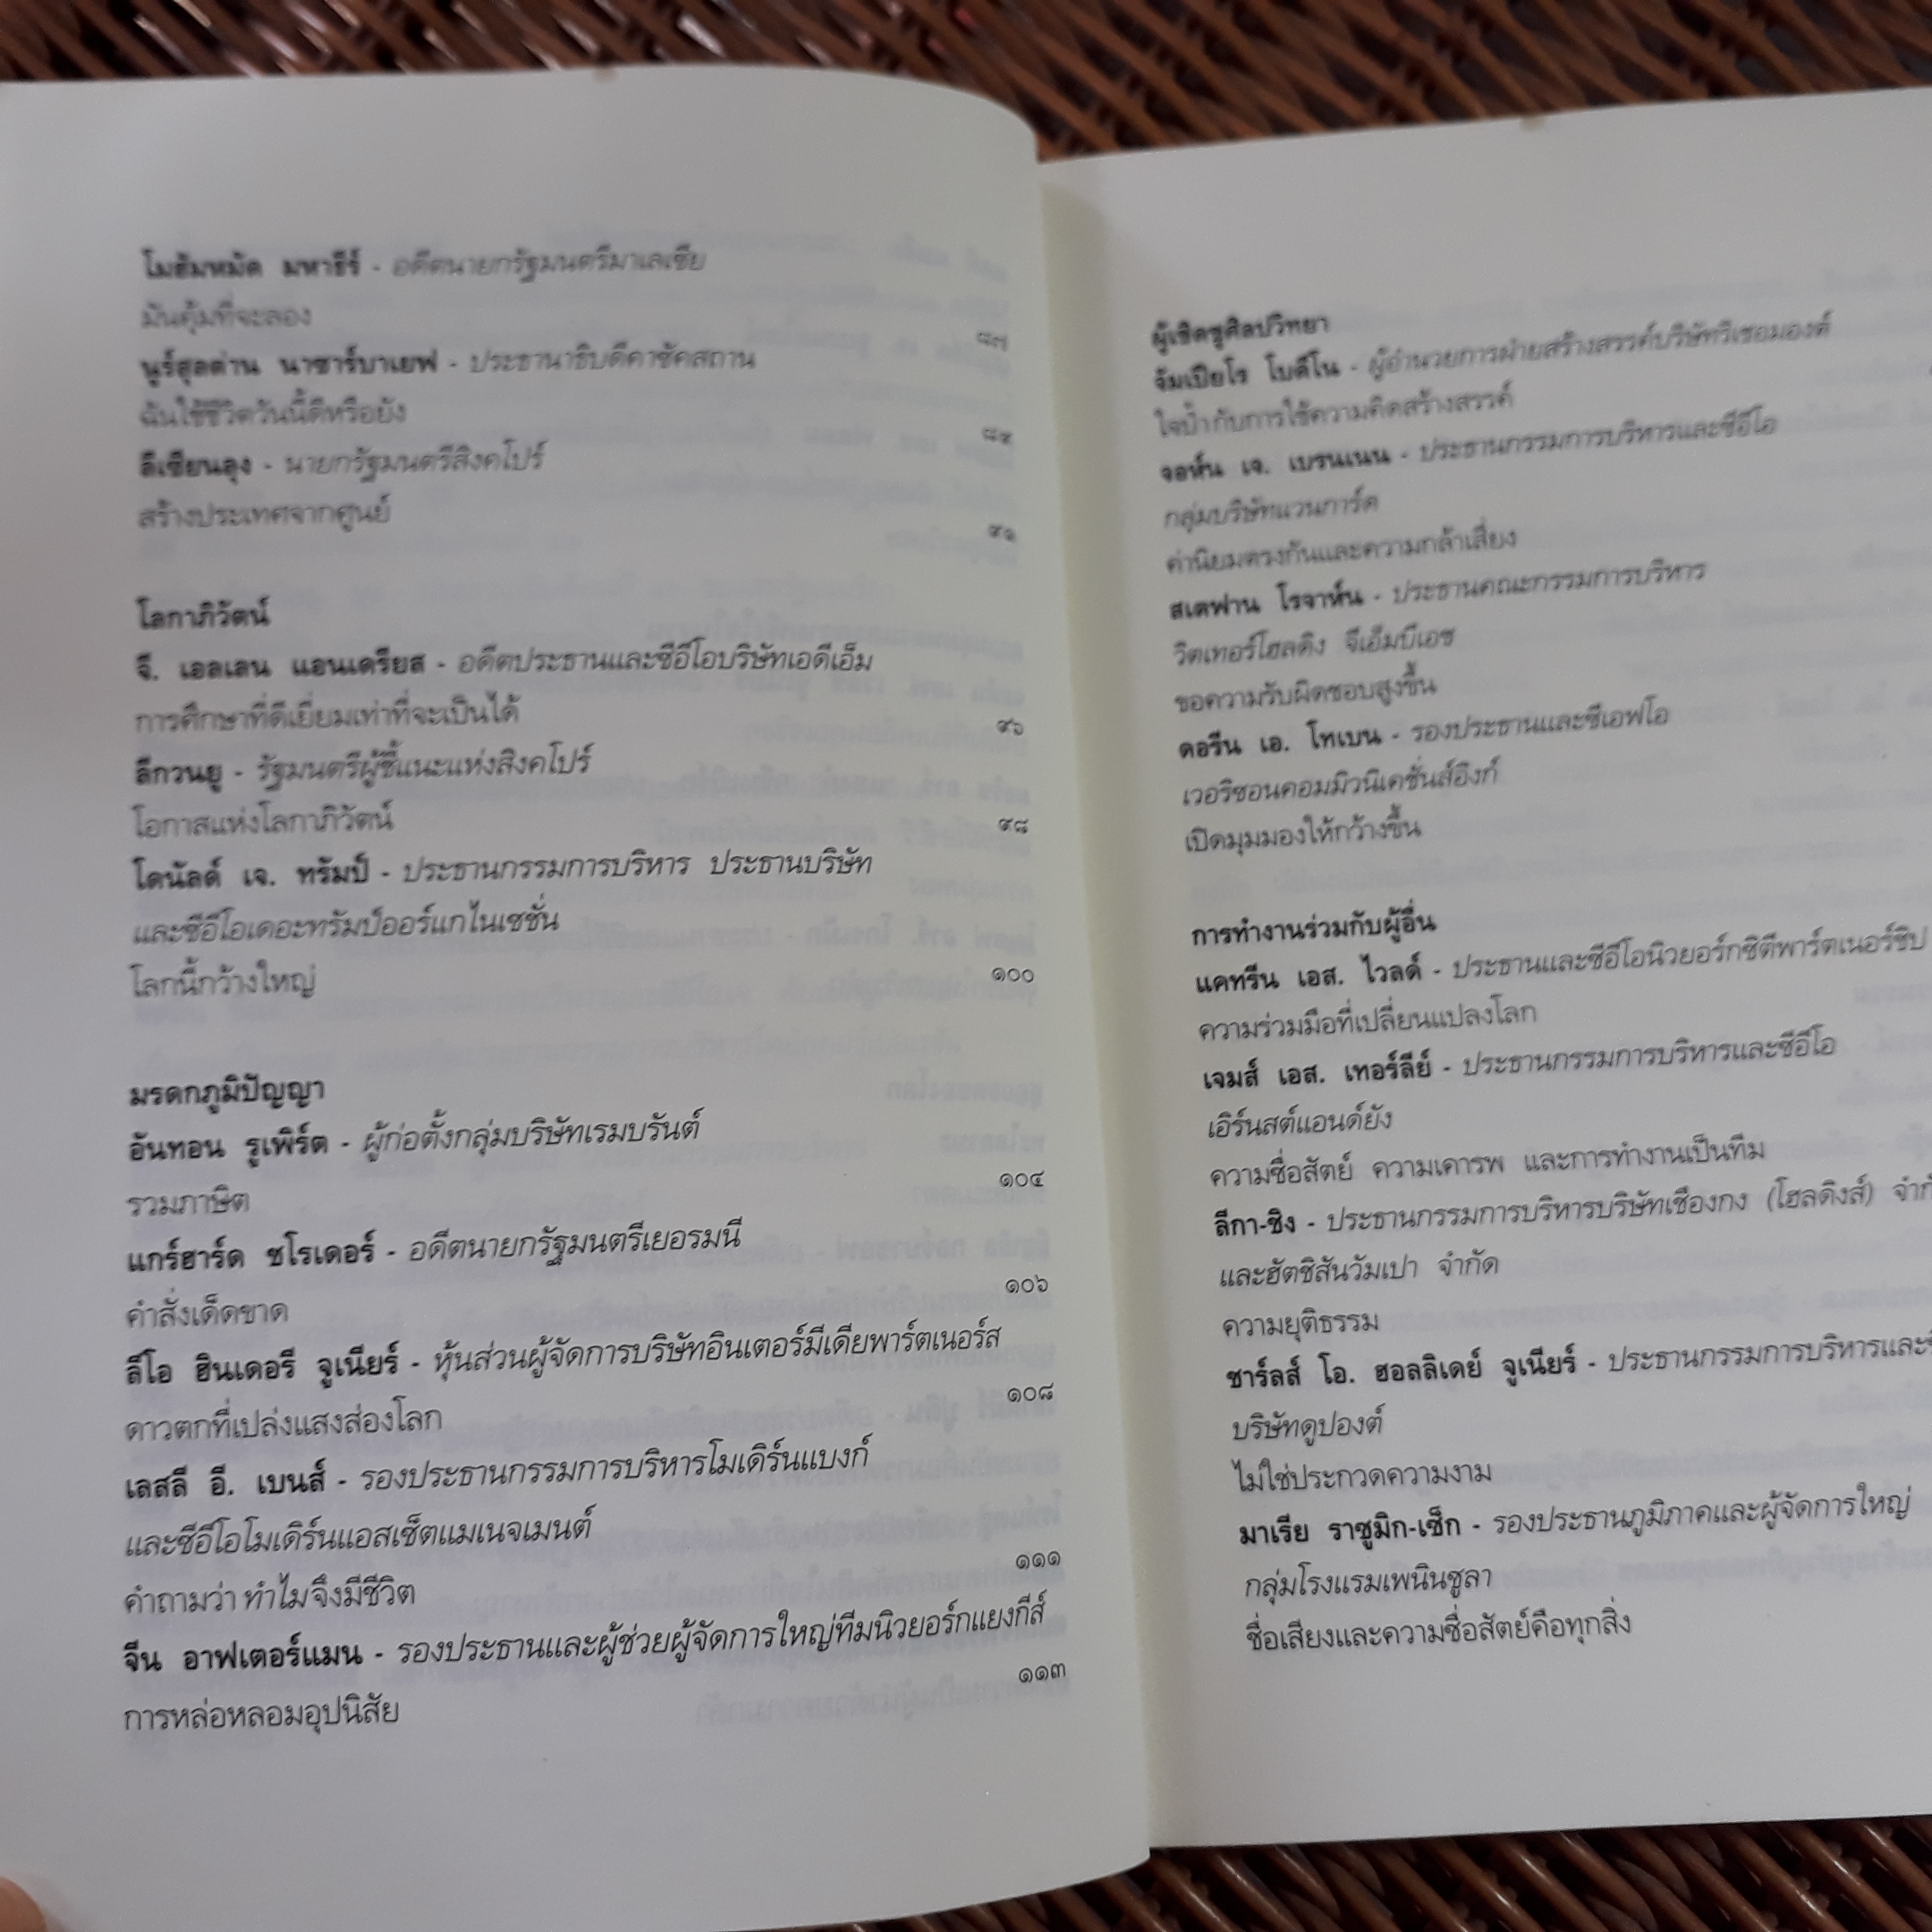 โมฮัมหมัด มหาธีร์ - อดีตนายกรัฐมนตรีมาเลเซีย
มันคุ้มที่จะลอง ๘๗
นูร์สุลต่าน นาซาร์บาเยฟ - ประธานาธิบดีคาซัคสถาน
ฉันใช้ชีวิตวันนี้ดีหรือยัง ๘๙
ลีเซียนลุง - นายกรัฐมนตรีสิงคโปร์
สร้างประเทศจากศูนย์ ๙๑
โลกาภิวัตน์
จี. เอลเลน แอนเดรียส - อดีตประธานและซีอีโอบริษัทเอดีเอ็ม
การศึกษาที่ดีเยี่ยมเท่าที่จะเป็นได้ ๙๖
ลีกวนยู - รัฐมนตรีผู้ชี้แนะแห่งสิงคโปร์
โอกาสแห่งโลกาภิวัตน์ ๙๘
โดนัลด์ เจ. ทรัมป์ - ประธานกรรมการบริหาร ประธานบริษัท
และซีอีโอเดอะทรัมป์ออร์แกไนเซชั่น
โลกนี้กว้างใหญ่ ๑๐๐
มรดกภูมิปัญญา
อันทอน รูเพิร์ต - ผู้ก่อตั้งกลุ่มบริษัทเรมบรันต์
รวมภาษิต ๑๐๔
แกร์ฮาร์ด ชโรเดอร์ - อดีตนายกรัฐมนตรีเยอรมนี
คำสั่งเด็ดขาด ๑๐๖
ลีโอ ฮินเดอรี จูเนียร์ - หุ้นส่วนผู้จัดการบริษัทอินเตอร์มีเดียพาร์ตเนอร์ส
ดาวตกที่เปล่งแสงส่องโลก ๑๐๘
เลสลี อี. เบนส์ - รองประธานกรรมการบริหารโมเดิร์นแบงก์
และซีอีโอโมเดิร์นแอสเซ็ตแมเนจเมนต์
คำถามว่า ทำไม จึงมีชีวิต ๑๑๑
จีน อาฟเตอร์แมน - รองประธานและผู้ช่วยผู้จัดการใหญ่ทีมนิวยอร์กแยงกีส์
การหล่อหลอมอุปนิสัย ๑๑๓
ผู้เชิดชูศิลปวิทยา
จัมเปียโร โบดีโน - ผู้อำนวยการฝ่ายสร้างสรรค์บริษัทริเชอมองต์
ใจป้ำกับการใช้ความคิดสร้างสรรค์
จอห์น เจ. เบรนเนน - ประธานกรรมการบริหารและซีอีโอ
กลุ่มบริษัทแวนการ์ด
ค่านิยมตรงกันและความกล้าเสี่ยง
สเตฟาน โรจาห์น - ประธานคณะกรรมการบริหาร
วิตเทอร์โฮลดิง จีเอ็มบีเอช
ขอความรับผิดชอบสูงขึ้น
ดอรีน เอ. โทเบน - รองประธานและซีเอฟโอ
เวอริซอนคอมมิวนิเคชั่นส์อิงก์
เปิดมุมมองให้กว้างขึ้น
การทำงานร่วมกับผู้อื่น
แคทรีน เอส. ไวลด์ - ประธานและซีอีโอนิวยอร์กซิตีพาร์ตเนอร์ชิป
ความร่วมมือที่เปลี่ยนแปลงโลก
เจมส์ เอส. เทอร์ลีย์ - ประธานกรรมการบริหารและซีอีโอ
เอิร์นสต์แอนด์ยัง
ความซื่อสัตย์ ความเคารพ และการทำงานเป็นทีม
ลีกา-ชิง - ประธานกรรมการบริหารบริษัทเชืองกง (โฮลดิงส์)
และฮัตชิสันวัมเปา จำกัด
ความยุติธรรม
ชาร์ลส์ โอ. ฮอลลิเดย์ จูเนียร์ - ประธานกรรมการบริหารและ
บริษัทดูปองต์
ไม่ใช่ประกวดความงาม
มาเรีย ราซูมิก-เซ็ก - รองประธานภูมิภาคและผู้จัดการใหญ่
กลุ่มโรงแรมเพนินซูลา
ชื่อเสียงและความซื่อสัตย์คือทุกสิ่ง